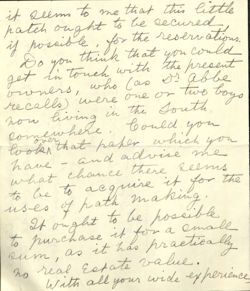 it seems to me that this little
patch ought to be secured,
if possible, for the reservations.
Do you think that you could
get in touch with the present
owners, who (as Dr Abbe
recalls) were one or two boys
now living in the South
somewhere. Could you
look over that paper which you
have - and advise me
what chance there seems
to be to acquire it for the
uses of path making.
It ought to be possible
to purchase it for a small
sum, as it has practically
no real Estate value.
With all your wide experience